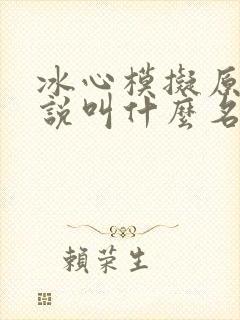 冰心模擬原
說叫什麼名
賴荣生